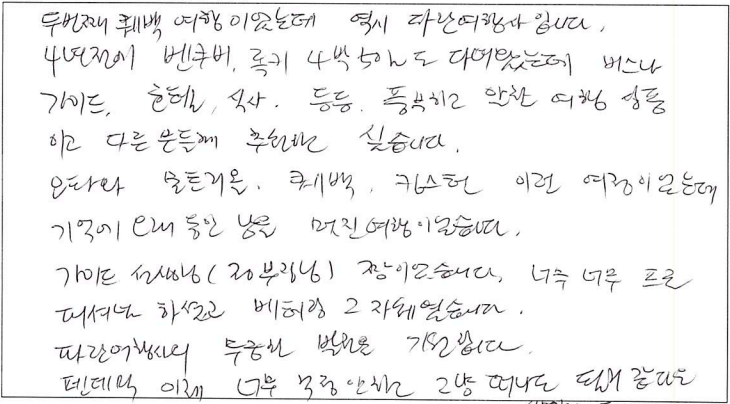 두번째 퀘백 여행이었는데 역시 파란여행사 입니다.
4년전에 벤쿠버, 록키 4박 5일도 다녀왔는데 버스나
가이드, 호텔, 식사. 등등. 풍부하고 알찬 여행 상품
이고 다른 분들께 추천하고 싶습니다.
오타와 몬트리올. 퀘백. 킹스턴 이런 여정이었는데
기억에 오래 동안 남을 멋진여행이었습니다.
가이드 선생님( 부장님) 짱이였습니다, 너무 너무 프로
페셔널 하셨고 베테랑 그 자체였습니다.
파란여행사의 무궁한 발전을 기원합니다.
펜데믹 이제 너무 걱정 안하고 그냥 떠나도 될꺼 같다는